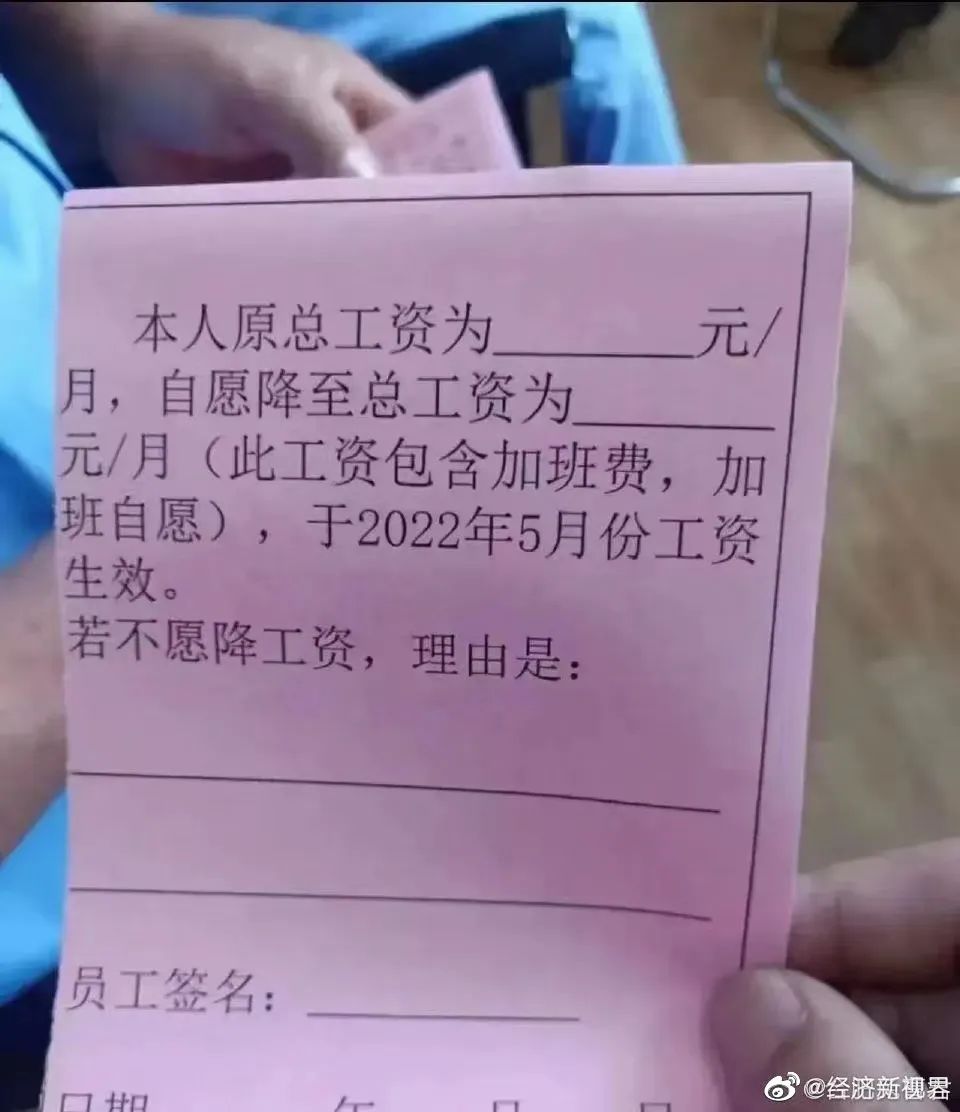 本人原总工资为________元/
月，自愿降至总工资为________
元/月（此工资包含加班费，加
班自愿），于2022年5月份工资
生效。
若不愿降工资，理由是：
员工签名：___________
日期 年 月 日
@经济新视界